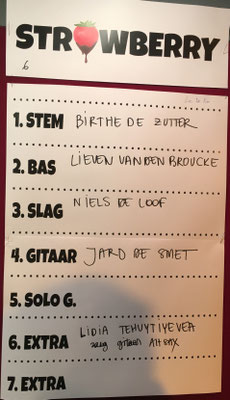 STRAWBERRY
6
1. STEM BIRTHE DE ZUTTER
2. BAS LIEVEN VANDEN BROUCKE
3. SLAG NIELS DE LOOF
4. GITAAR JARD DE SMET
5. SOLO G.
6. EXTRA LIDIA TEHUYTIYEVEA
zang gitaar Alt SAX
7. EXTRA